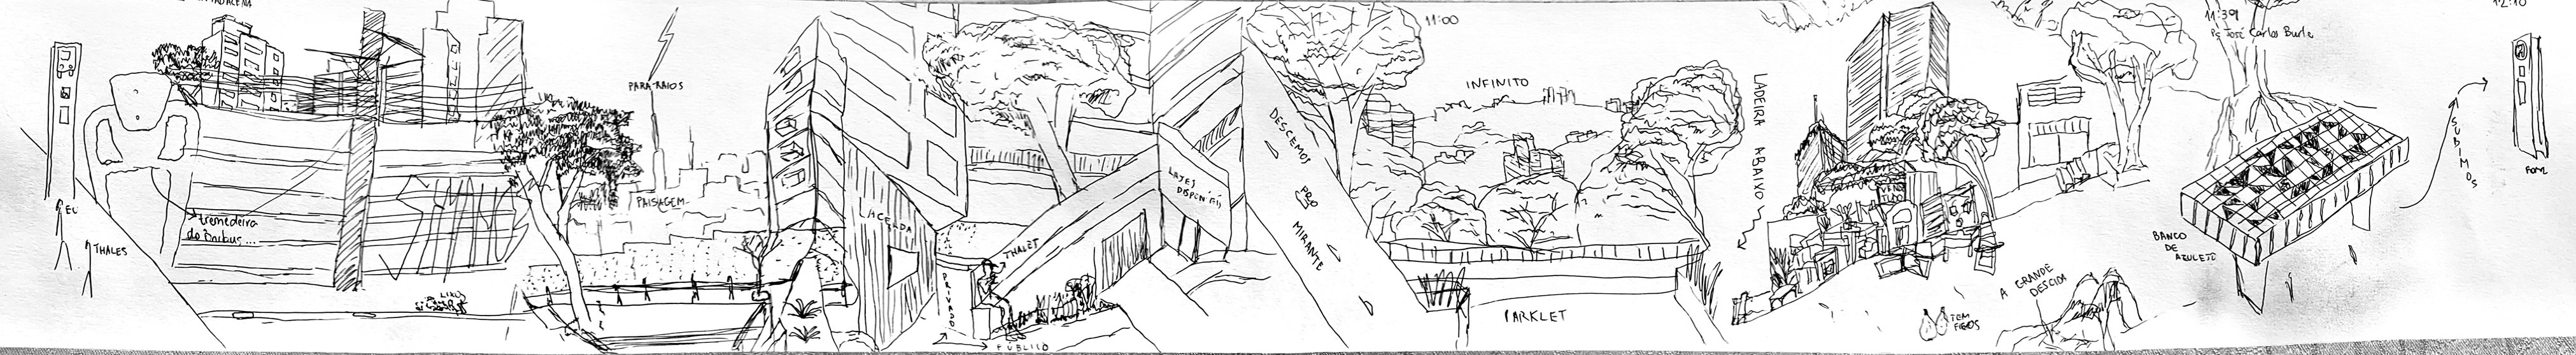 EU
THALES
tremedeira
do ônibus...
PARA-RAIOS
PAISAGEM
LIXO
LACERDA
PRIVADO
PÚBLICO
THALES
LAJES
DISPONÍVEIS
11:00
DESCEMOS
PRO
MIRANTE
INFINITO
PARKLET
LADEIRA ABAIXO
TEM
FIGOS
A GRANDE
DESCIDA
11:39
Pç José Carlos Burle
BANCO
DE
AZULEJO
SUBIMOS
12:10